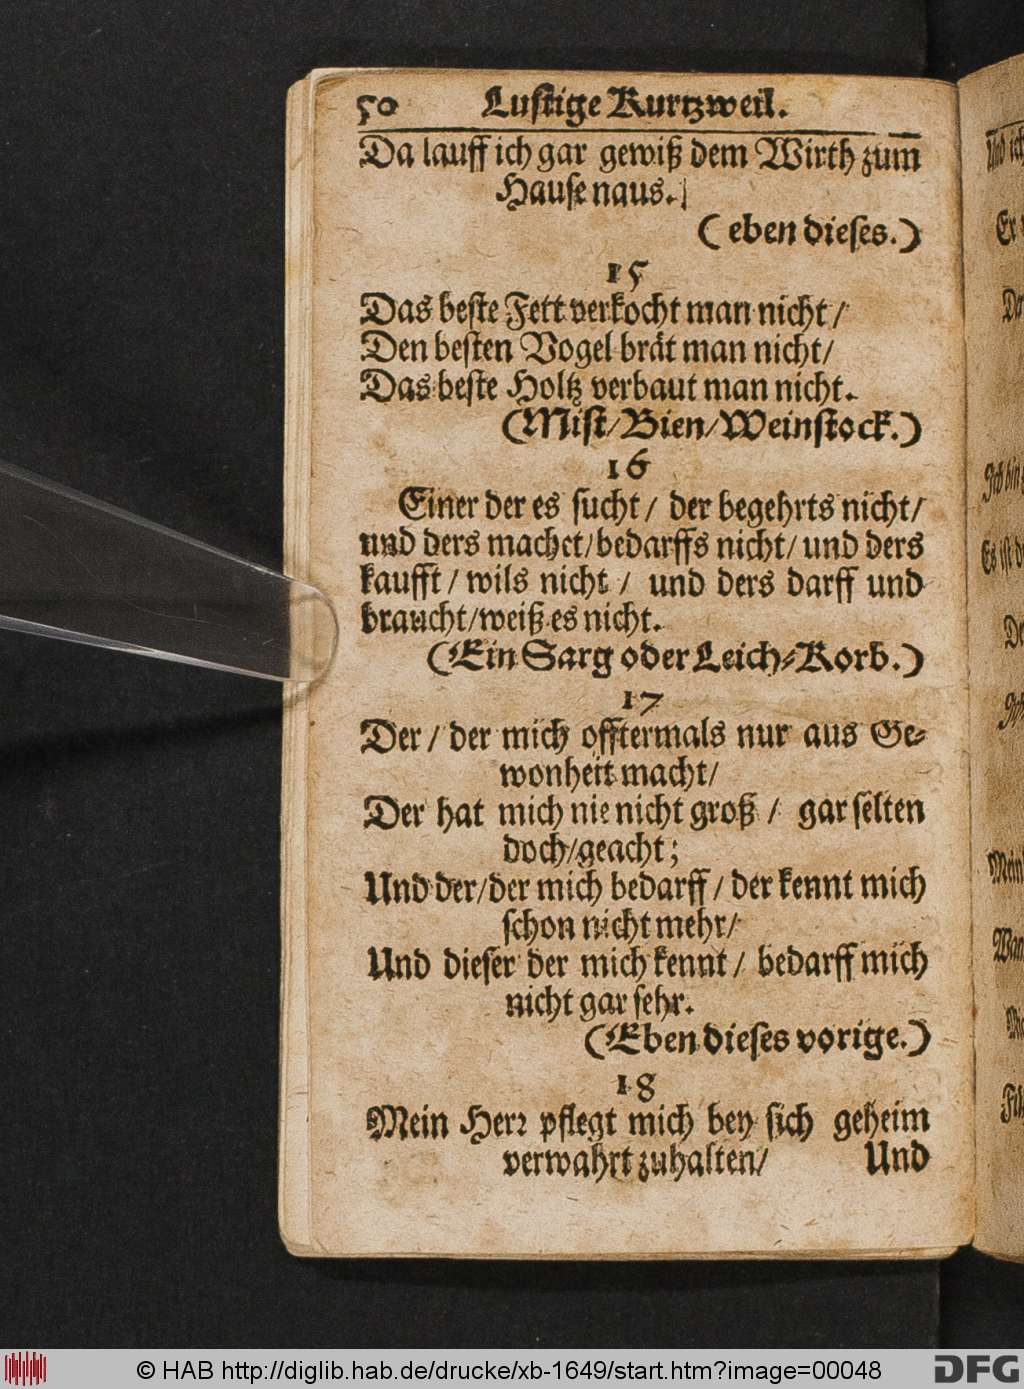 50 Lustige Kurtzweil.
Da lauff ich gar gewiß dem Wirth zum
Hause naus.
(eben dieses.)
15
Das beste Fett verkocht man nicht/
Den besten Vogel brät man nicht/
Das beste Holtz verbaut man nicht.
(Mist/Bien/Weinstock.)
16
Einer der es sucht/ der begehrts nicht/
und ders machet/bedarffs nicht/ und ders
kaufft/ wils nicht/ und ders darff und
braucht/weiß es nicht.
(Ein Sarg oder Leich-Korb.)
17
Der/ der mich offtermals nur aus Ge-
wonheit macht/
Der hat mich nie nicht groß/ gar selten
doch/geacht;
Und der/der mich bedarff/ der kennt mich
schon nicht mehr/
Und dieser der mich kennt/ bedarff mich
nicht gar sehr.
(Eben dieses vorige.)
18
Mein Herr pflegt mich bey sich geheim
verwahrt zuhalten/ Und
© HAB http://diglib.hab.de/drucke/xb-1649/start.htm?image=00048
DFG